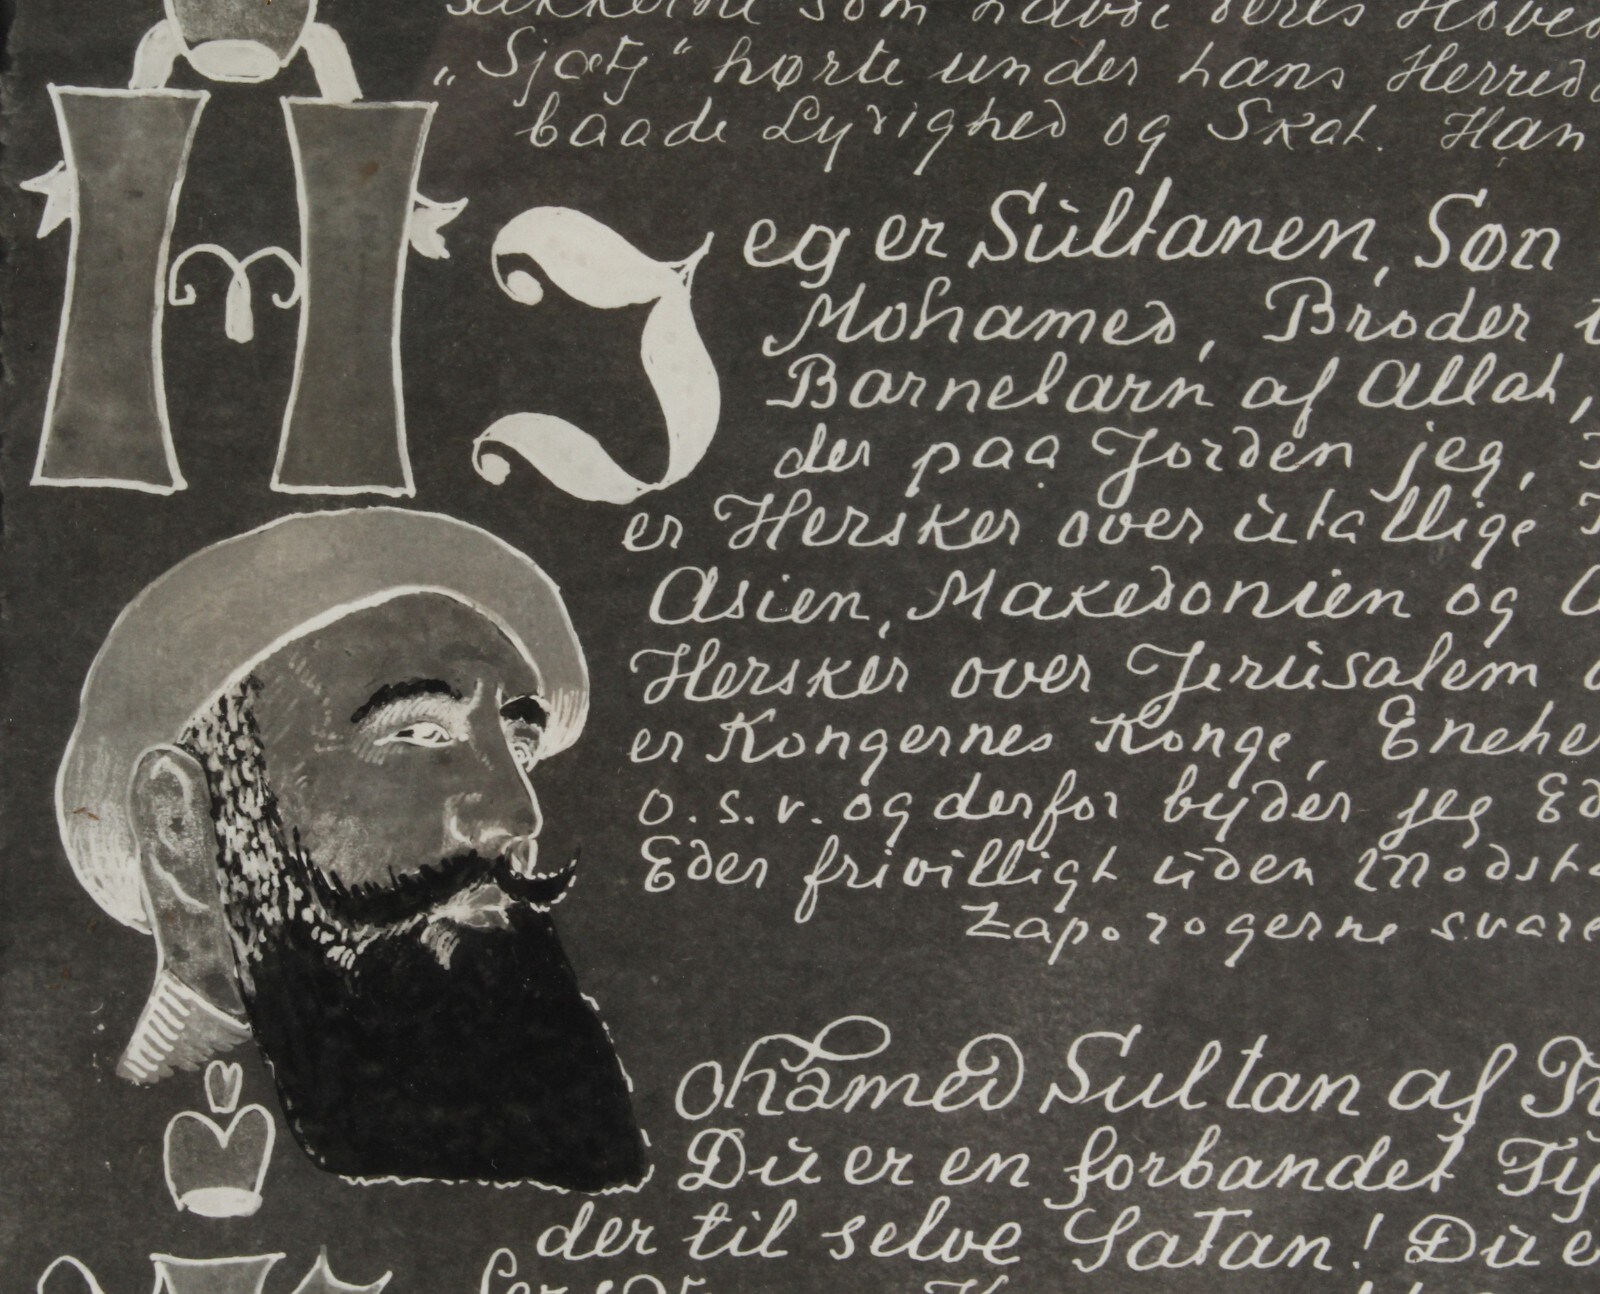 som havde deres Hoved
„Sjætj“ hørte under hans Herred
baade Lydighed og Skat. Han
Jeg er Sultanen, Søn
Mohamed, Broder
Barnebarn af Allah,
der paa Jorden jeg,
er Hersker over utallige
Asien, Makedonien og
Hersker over Jerusalem
er Kongernes Konge, Enehe
o.s.v. og derfor byder jeg Ed
Eder frivilligt uden Modsta
Zaporogerne svare
ohamed Sultan af Ty
Du er en forbandet Ty
der til selve Satan! Du e